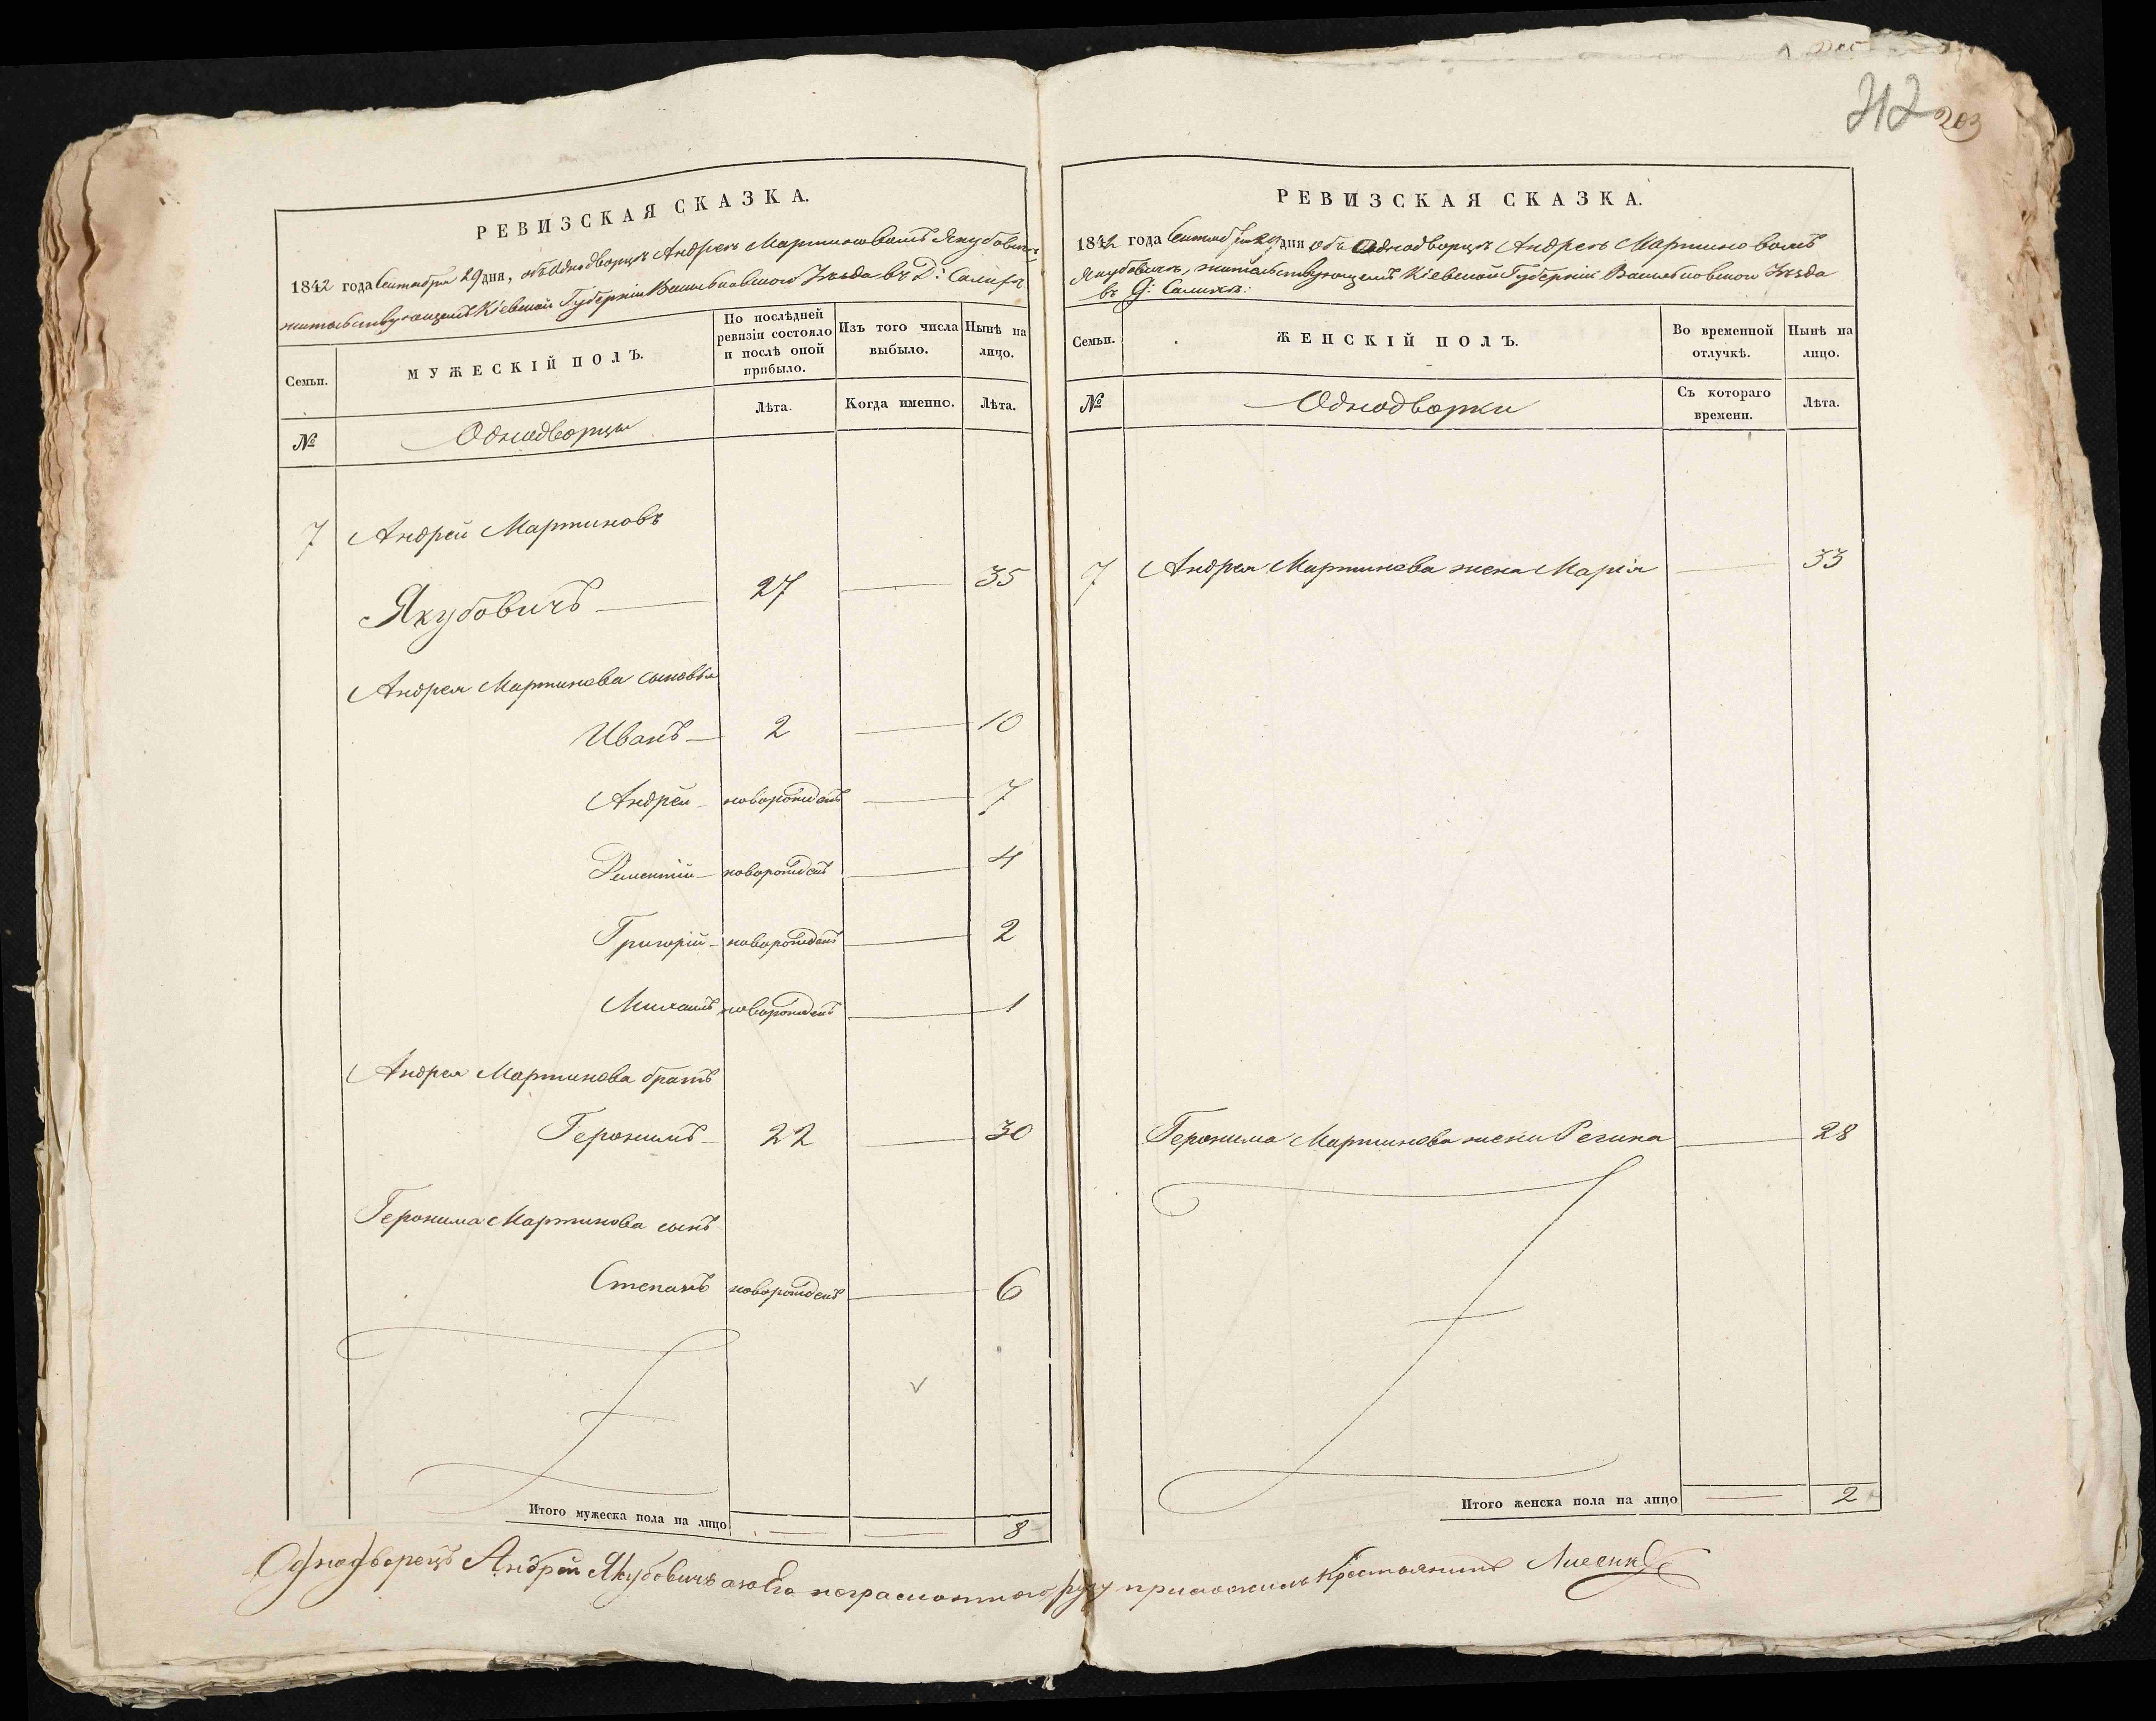 212 203
РЕВИЗСКАЯ СКАЗКА.
1842 года Сентября 29 дня, объ Однодворцѣ Андреѣ Мартиновомъ Якубовичѣ
жительствующемъ Кіевской Губерніи Васильковского Уѣзда въ Д:
Семьи.
МУЖЕСКІЙ ПОЛЪ.
По послѣдней ревизіи состояло и послѣ оной прибыло.
Изъ того числа выбыло.
Нынѣ на лицо.
№
Однодворцы
Лѣта.
Когда именно.
Лѣта.
7 Андрей Мартиновъ
Якубовичъ 27 35
Андрея Мартинова сыновья
Иванъ 2 10
Андрей новорожденъ 7
новорожденъ 4
Григорій новорожденъ 2
Михаилъ новорожденъ 1
Андрея Мартинова братъ
Геронимъ 22 30
Геронима Мартинова сынъ
Степанъ новорожденъ 6
Итого мужеска пола на лицо 8
РЕВИЗСКАЯ СКАЗКА.
1842 года Сентября 29 дня объ Однодворцѣ Андреѣ Мартиновомъ
Якубовичѣ, жительствующемъ Кіевской Губерніи Васильковского Уѣзда
въ Д:
Семьи.
ЖЕНСКІЙ ПОЛЪ.
Во временной отлучкѣ.
Нынѣ на лицо.
№
Однодворки
Съ котораго времени.
Лѣта.
7 Андрея Мартинова жена Марія 33
Геронима Мартинова жена Регина 28
Итого женска пола на лицо 2
Однодворецъ Андрей Якубовичъ а за Его неграмотного руку приложилъ Крестьянинъ